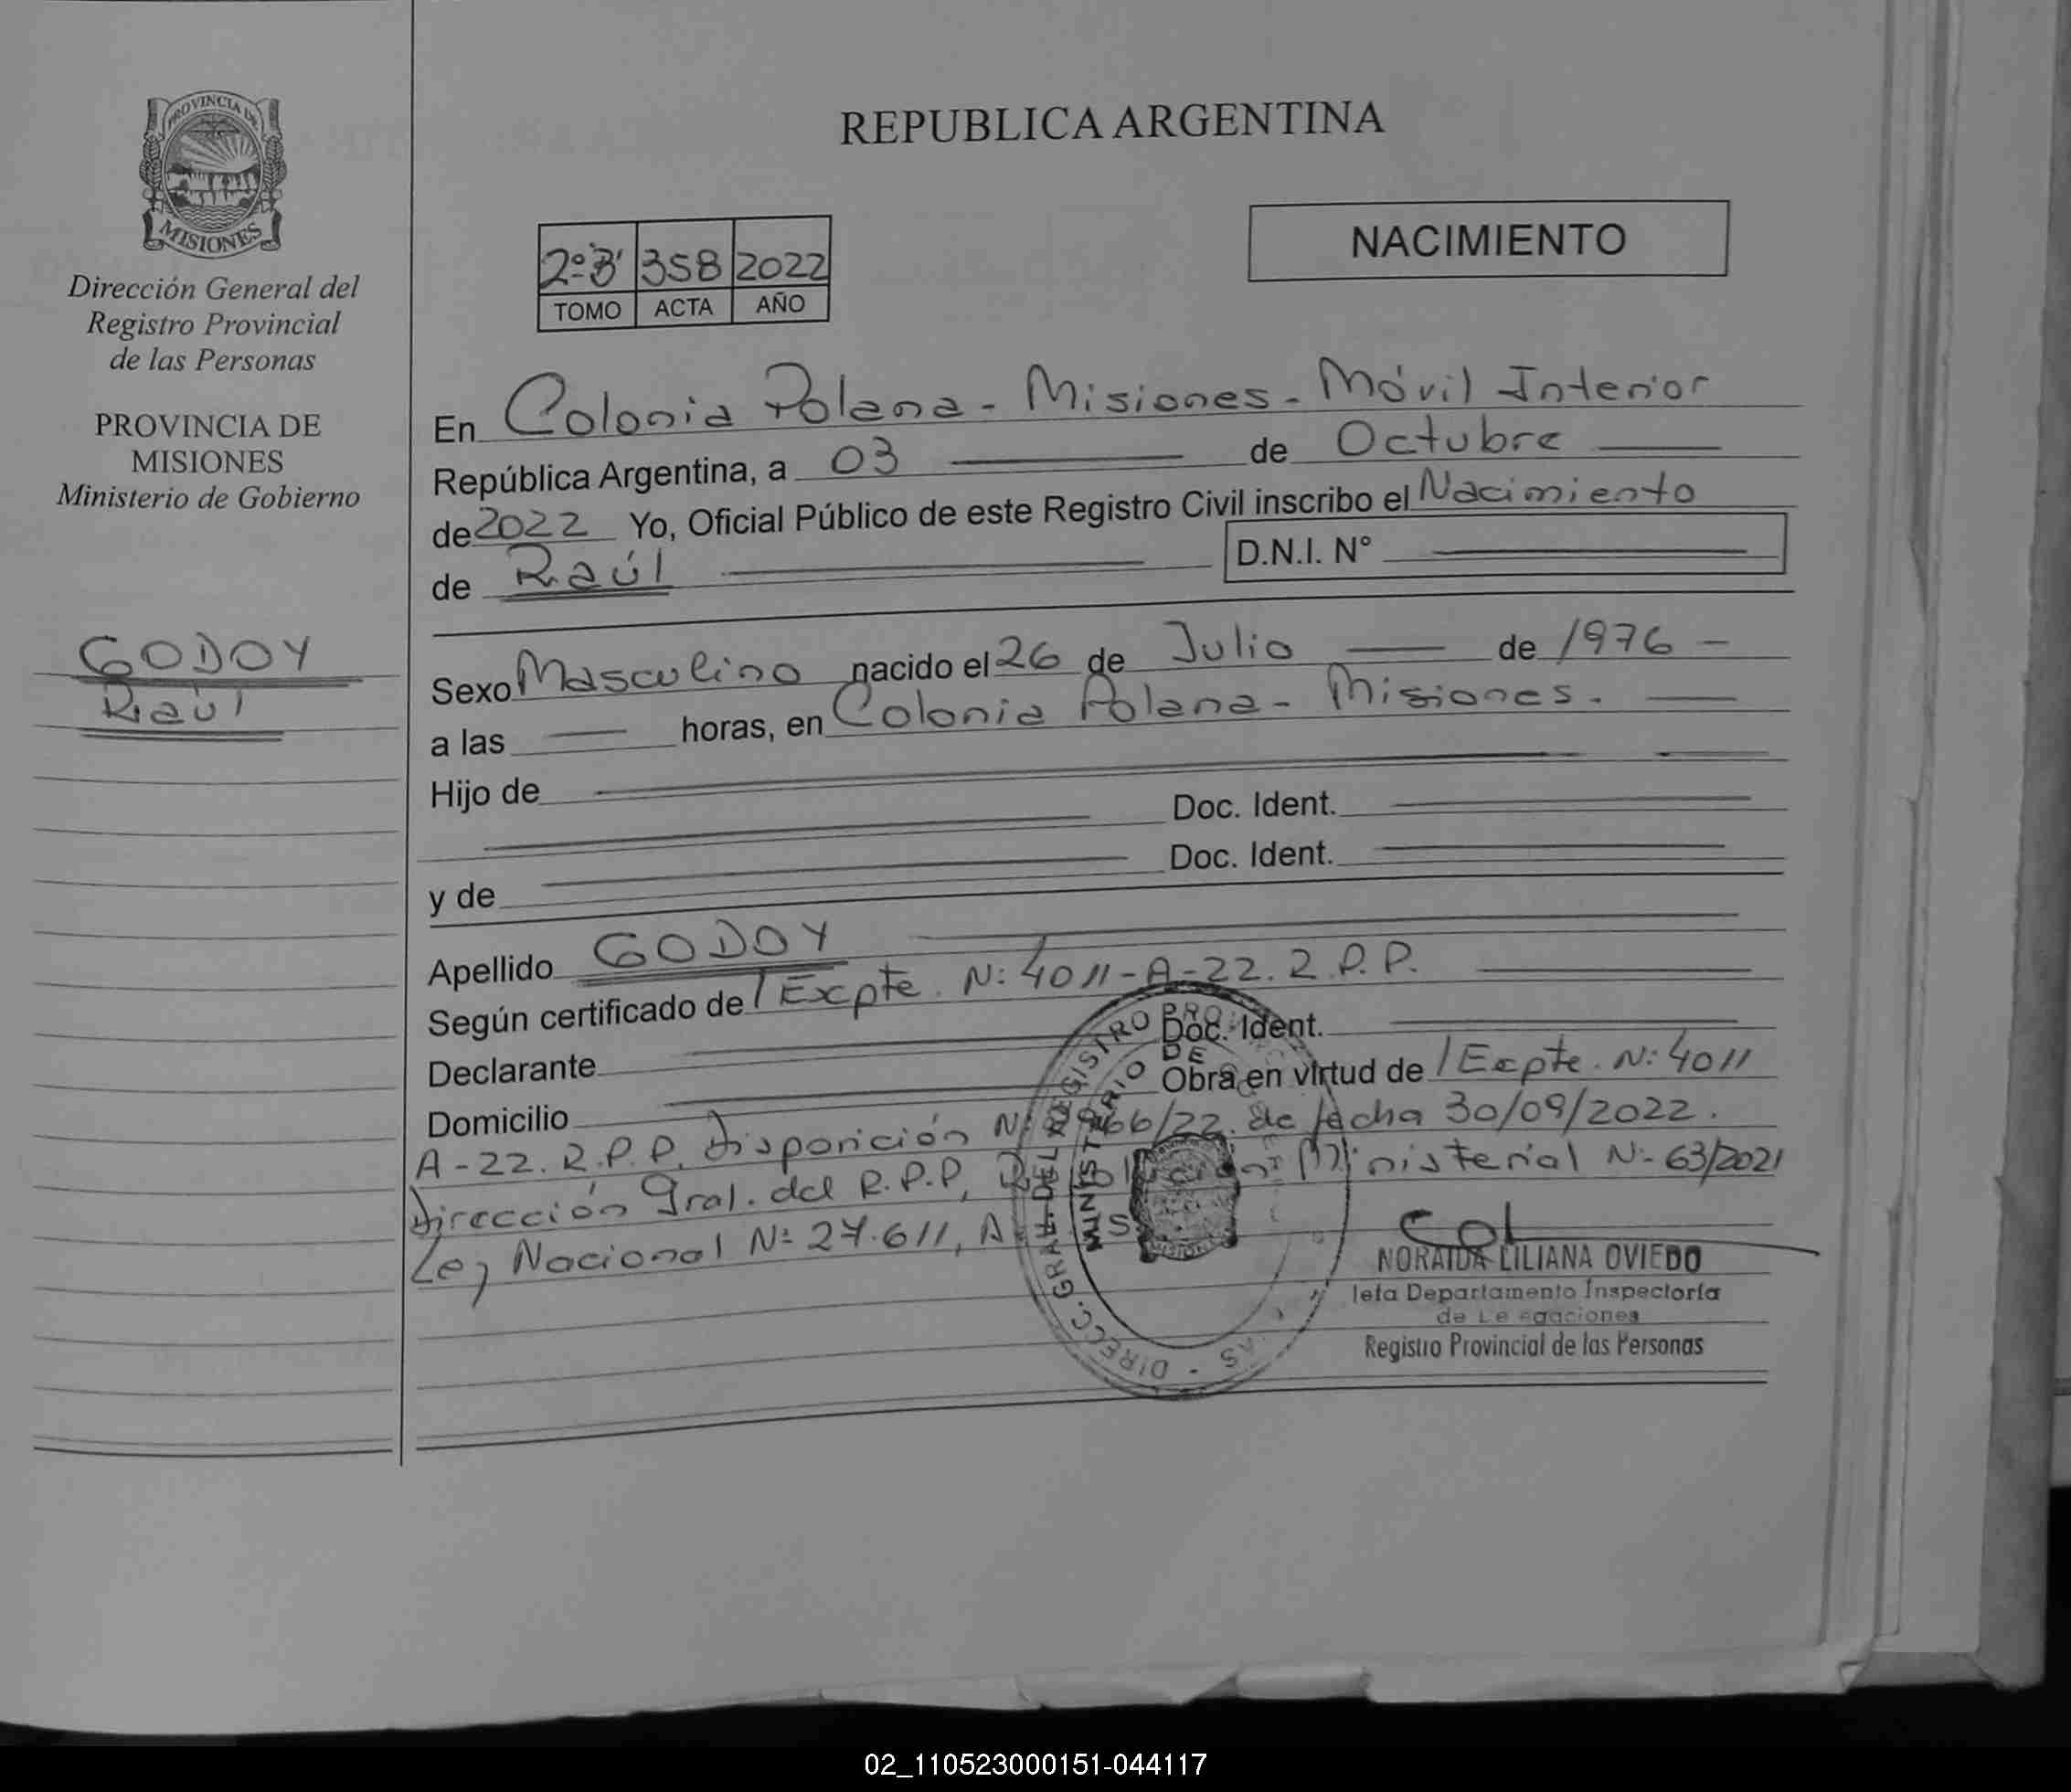 PROVINCIA DE
MISIONES
Dirección General del
Registro Provincial
de las Personas
PROVINCIA DE
MISIONES
Ministerio de Gobierno
GODOY
Raúl
REPUBLICA ARGENTINA
2º"B" 358 2022
TOMO ACTA AÑO
NACIMIENTO
En Colonia Polana - Misiones - Móvil Interior
República Argentina, a 03 de Octubre
de 2022 Yo, Oficial Público de este Registro Civil inscribo el Nacimiento
de Raúl D.N.I. N°
Sexo Masculino nacido el 26 de Julio de 1976 -
a las horas, en Colonia Polana - Misiones.
Hijo de
Doc. Ident.
y de Doc. Ident.
Apellido GODOY
Según certificado de / Expte. Nº 4011-A-22. R.P.P.
Declarante Doc. Ident.
Domicilio Obra en virtud de / Expte. Nº 4011
A-22. R.P.P. Disposición de fecha 30/09/2022.
Dirección Gral. del R.P.P, Ministerial Nº 63/2021
Ley Nacional Nº 27.611, A
DIRECC. GRAL. DEL REGISTRO
MINISTERIO DE
NORAIDA LILIANA OVIEDO
Jefa Departamento Inspectoría
de
Registro Provincial de las Personas
02_110523000151-044117